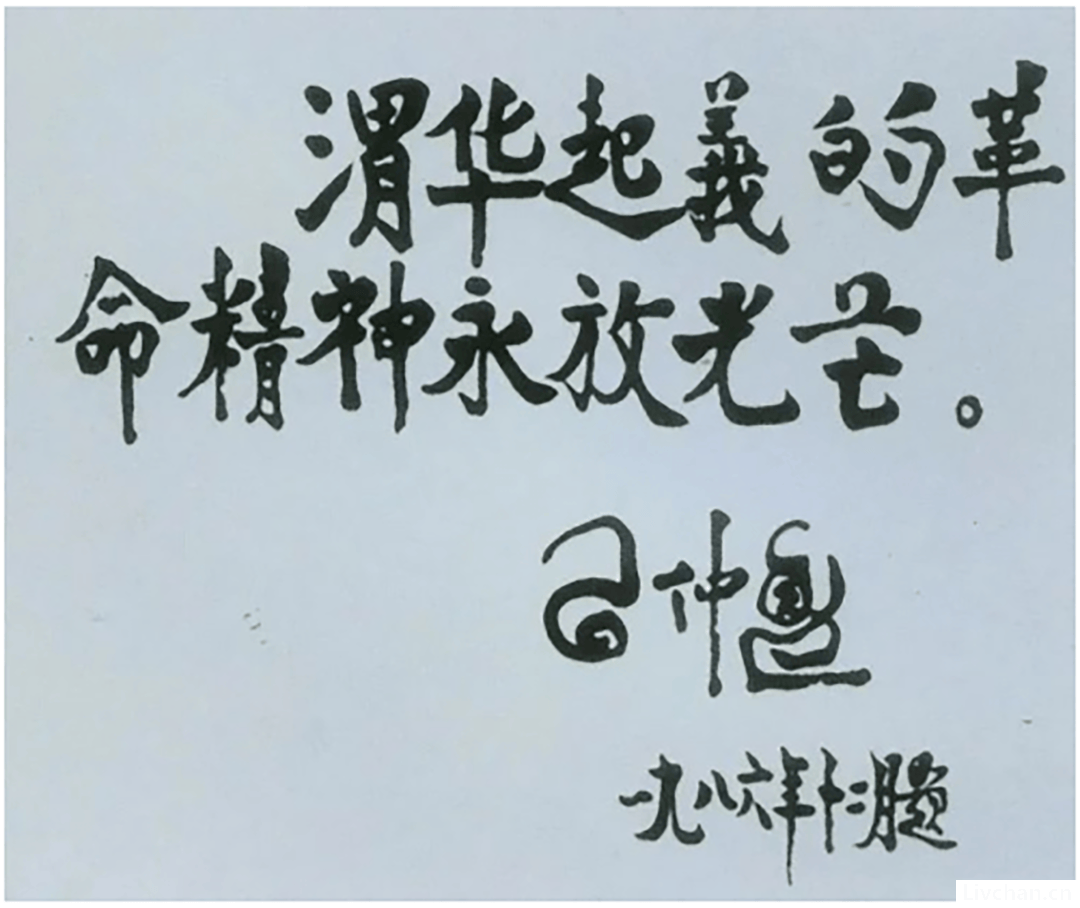 渭华起義的革
命精神永放光芒。
习仲勋
一九八六年十二月题
Livchan.cn